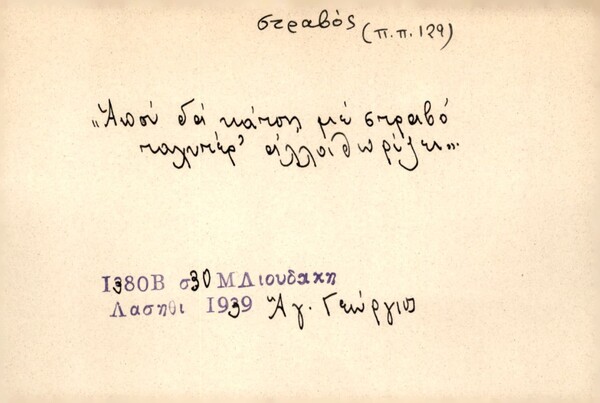 στραβός (π.π. 129)
„Ἀποὺ δὰ κάτση μὲ στραβὸ
ταχυτέρ' ἀλλοιθωρίζει".
1380Β σ30 ΜΛιουδακη
Λασηθι 1939 Ἅγ. Γεώργιος